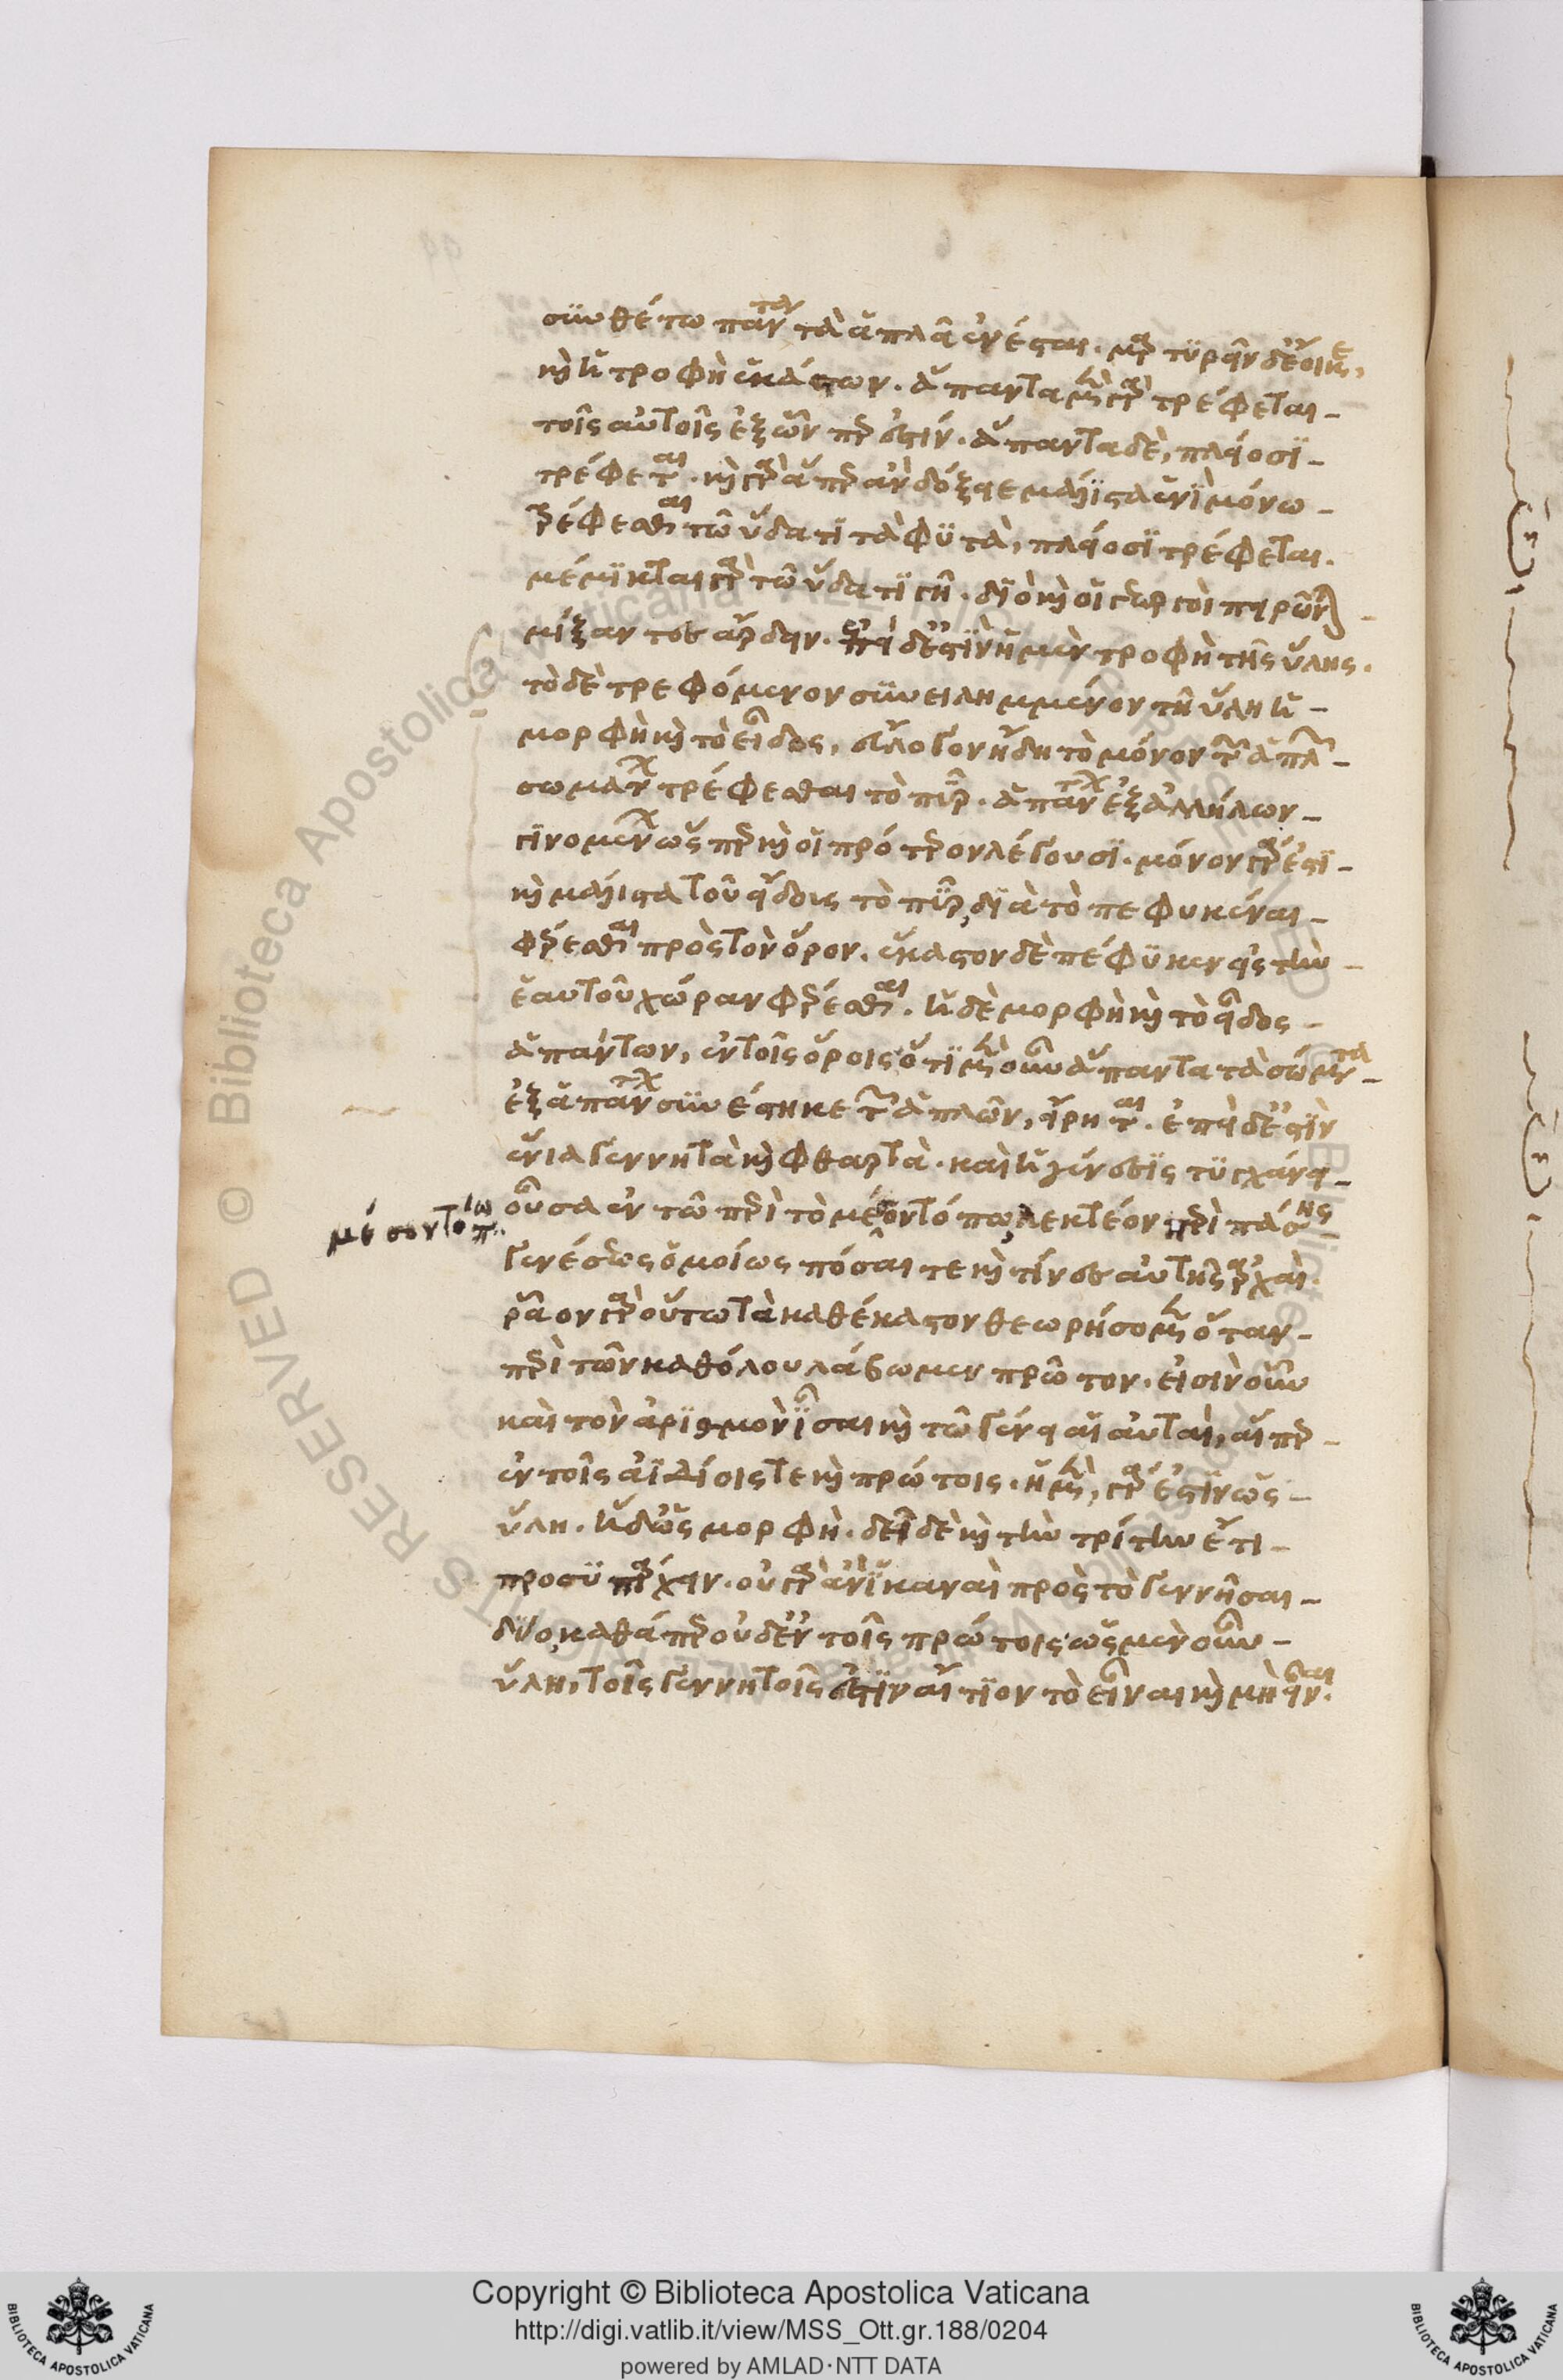 συνθέτω πάντα τὰ ἁπλᾶ ἐνέσται. μαρτυρεῖν δ᾽ ἔοικε,
καὶ ἡ τροφὴ ἑκάστων. ἅπαντα μὲν γὰρ τρέφεται
τοῖς αὐτοῖς ἐξ ὧνπερ ἐστίν. ἅπαντα δὲ, πλείοσι
τρέφεται. καὶ γὰρ ἅπερ ἂν δόξειε μάλιστα ἑνὶ μόνω
τρέφεσθαι τῶ ὕδατι τὰ φυτὰ, πλείοσι τρέφεται.
μέμικται γὰρ τῶ ὕδατι γῆ. διὸ καὶ οἱ γεωργοὶ πειρῶνται
μίξαντες ἄρδειν. ἐπεὶ δ᾽ ἐστὶν ἡ μὲν τροφὴ τῆς ὕλης.
τὸ δὲ τρεφόμενον συνειλημμένον τῆ ὕλη ἡ
μορφὴ καὶ τὸ εἶδος, εὔλογον ἤδη τὸ μόνον τῶν ἁπλῶν
σωμάτων τρέφεσθαι τὸ πῦρ. ἁπάντων ἐξ ἀλλήλων
γινομένων ὥσπερ καὶ οἱ πρότερον λέγουσι. μόνον γάρ ἐστι
καὶ μάλιστα τοῦ εἴδους τὸ πῦρ, διὰ τὸ πεφυκέναι
φέρεσθαι πρὸς τὸν ὅρον. ἕκαστον δὲ πέφυκεν εἰς τὴν
ἑαυτοῦ χώραν φέρεσθαι. ἡ δὲ μορφὴ καὶ τὸ εἶδος
ἁπάντων, ἐν τοῖς ὅροις ὅτι μὲν οὖν ἅπαντα τὰ σώματα
ἐξ ἁπάντων συνέστηκε τῶν ἁπλῶν, εἴρηται. ἐπεὶ δ᾽ ἐστὶν
ἔνια γεννητὰ καὶ φθαρτὰ. καὶ ἡ γένεσις τυγχάνει
μέσον τόπον
οὖσα ἐν τῶ περὶ τὸ μέσον τόπω, λεκτέον περὶ πάσης
γενέσεως ὁμοίως πόσαι τε καὶ τίνες αὐτῆς ἀρχαί.
ρᾶον γὰρ οὕτω τὰ καθέκαστον θεωρήσομεν ὅταν
περὶ τῶν καθόλου λάβωμεν πρῶτον. εἰσὶν οὖν
καὶ τὸν ἀριθμὸν ἴσαι καὶ τῶ γένει αἱ αὐταὶ, αἵπερ
ἐν τοῖς ἀϊδίοις τε καὶ πρώτοις. ἡ μὲν, γάρ ἐστιν ὡς
ὕλη. ἡ δ᾽ ὡς μορφὴ. δεῖ δὲ καὶ τὴν τρίτην ἔτι
προσυπάρχειν. οὐ γὰρ ἂν ἱκαναὶ πρὸς τὸ γεννῆσαι
δύο, καθάπερ οὐδ᾽ ἐν τοῖς πρώτοις· ὡς μὲν οὖν
ὕλη, τοῖς γεννητοῖς ἐστὶν αἴτιον τὸ εἶναι καὶ μὴ εἶναι.
Copyright © Biblioteca Apostolica Vaticana
http://digi.vatlib.it/view/MSS_Ott.gr.188/0204
powered by AMLAD·NTT DATA
BIBLIOTECA APOSTOLICA VATICANA
BIBLIOTECA APOSTOLICA VATICANA